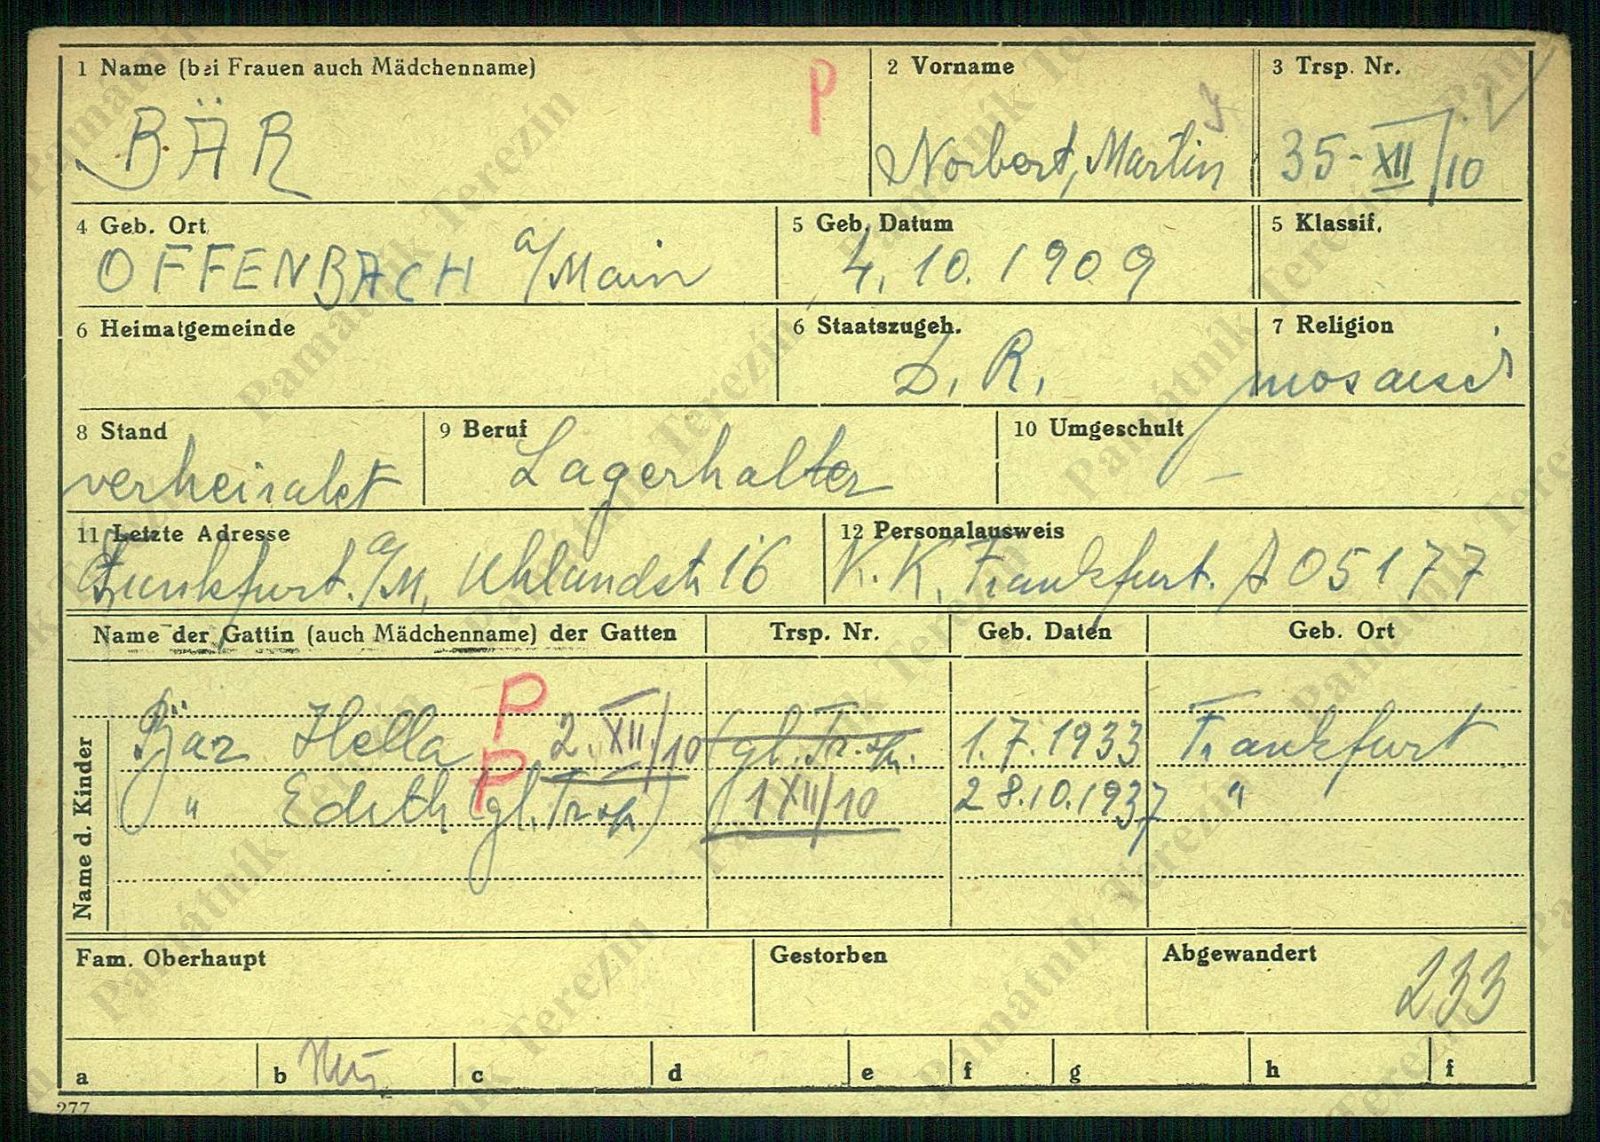 1 Name (bei Frauen auch Mädchenname)
P
2 Vorname
3 Trsp. Nr.
BÄR
Norbert, Martin
35-XII/10
4 Geb. Ort
5 Geb. Datum
5 Klassif.
OFFENBACH a/Main
4. 10. 1909
6 Heimatgemeinde
6 Staatszugeh.
7 Religion
D. R.
mosaisch
8 Stand
9 Beruf
10 Umgeschult
verheiratet
Lagerhalter
–
11 Letzte Adresse
12 Personalausweis
Frankfurt a/M, Uhlandstr 16
K. K. Frankfurt. A 05177
Name der Gattin (auch Mädchenname) der Gatten
Trsp. Nr.
Geb. Daten
Geb. Ort
Name d. Kinder
Bär Hella P 2. XII/10 (gl. Trsp. 1.7.1933 Frankfurt
" Edith P (gl. Trsp) 1 XII/10 28.10.1937 "
Fam. Oberhaupt
Gestorben
Abgewandert
233
a
b
c
d
e
f
g
h
f
277
Památník Terezín